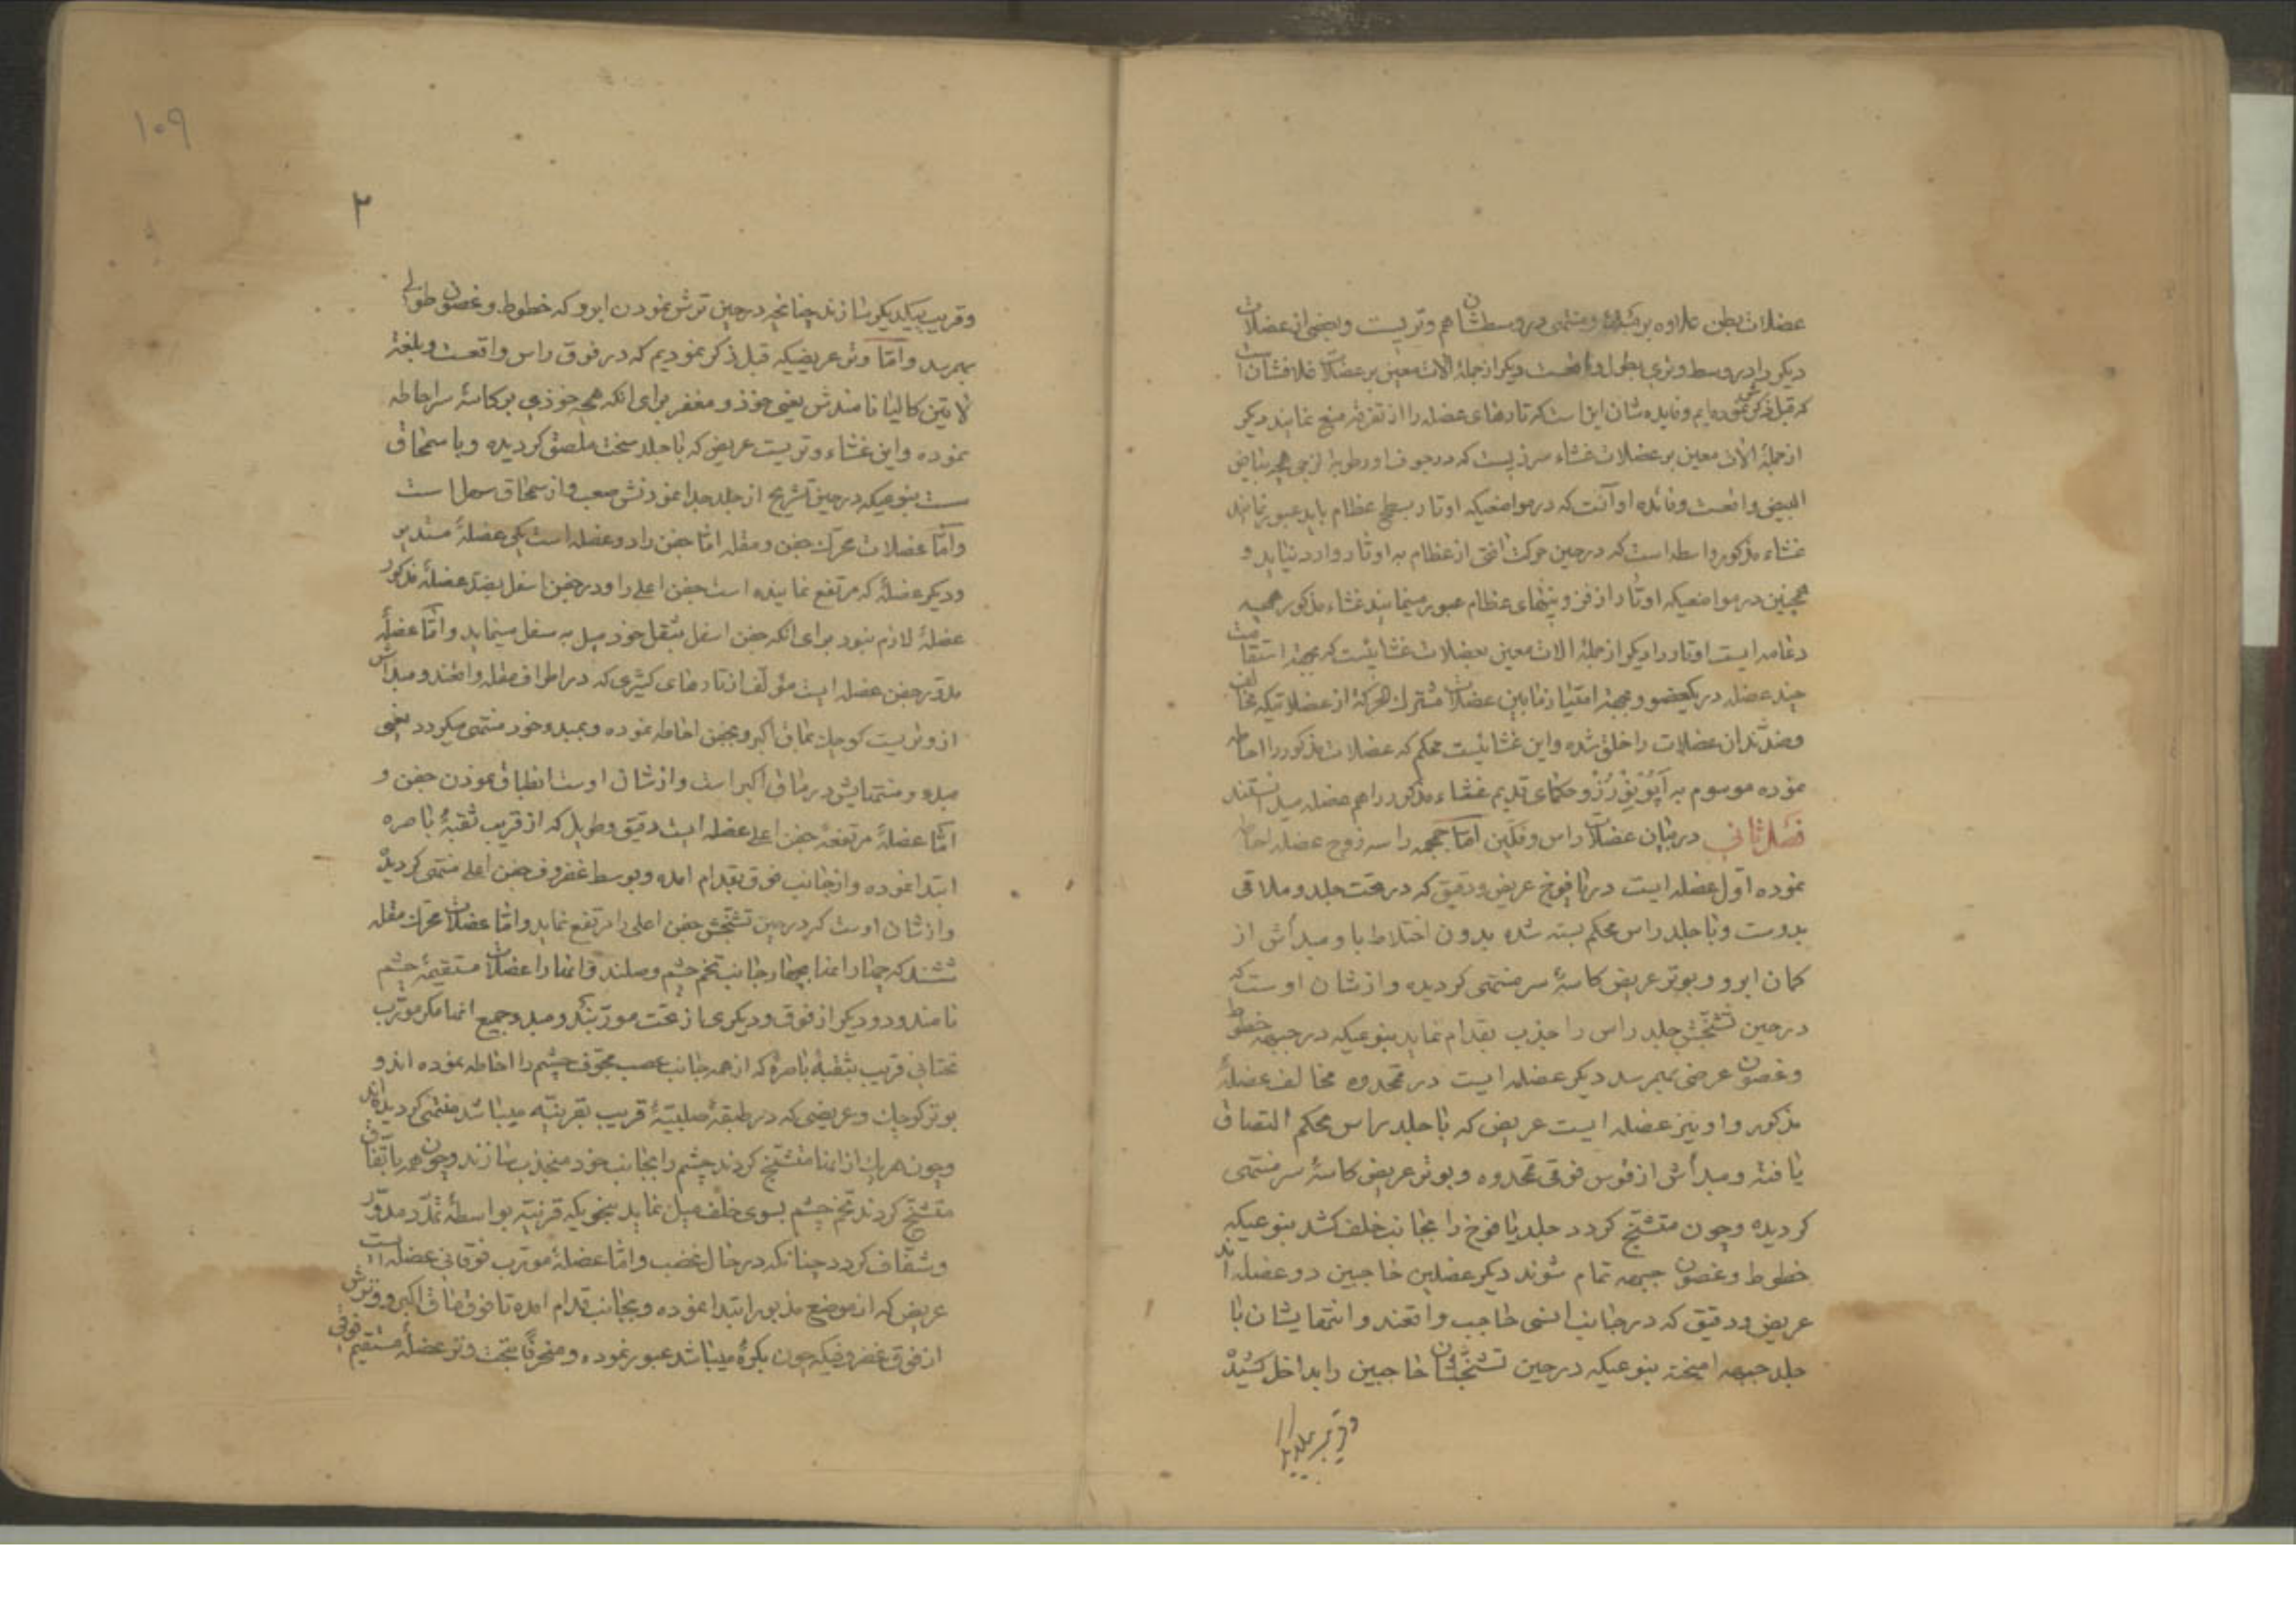 عضلات بطن علاوه بر مبداء و منتهی در وسطشان هم وتریست و بعضی از عضلات
دیگر را در وسط وتری بطول واقعست دیگر از جملهٔ آلات معین بر عضلات غلافشان است
که قبل ذکرش نموده‌ایم و فایده شان این است که تارهای عضله را از تفرقه منع نمایند دیگر
از جملهٔ آلات معین بر عضلات غشاء مرزیست که در جوف او رطوبة لزجی همچه بیاض
البیض واقعست و فائده او آنست که در مواضعیکه اوتار بسطح عظام باید عبور نمایند
غشاء مذکور واسطه است که در حین حرکت افتی از عظام به اوتار وارد نیاید و
همچنین در مواضعیکه اوتار از فزونیتهای عظام عبور مینمایند غشاء مذکور همچه
دعامه ایست اوتار را دیگر از جملهٔ الات معین بعضلات غشائیست که بجهة استقامت
چند عضله در یکعضو و بجهة امتیاز مابین عضلات مشترک الحرکة از عضلاتیکه مخالف
وضدّند ان عضلات را خلق شده و این غشائیست محکم که عضلات مذکور را احاطه
نموده موسوم به آپونورز و حکمای قدیم غشاء مذکور را هم عضله میدانستند
فصل ثانی در بیان عضلات راس و فکین اما جمجمه را سه زوج عضله احاطه
نموده اول عضله ایست در یافوخ عریض و دقیق که در تحت جلد و ملاقی
بدوست و با جلد راس محکم بسته شده بدون اختلاط با و مبدأش از
کمان ابرو و بوتر عریض کاسهٔ سر منتهی کردیده و از شان اوست که
در حین تشنجش جلد راس را جذب بقدام نماید بنوعیکه در جبهه خطوط
و غصون عرضی بهمرسد دیگر عضله ایست در قمحدوه مخالف عضلهٔ
مذکور و او نیز عضله ایست عریض که با جلد راس محکم التصاق
یافته و مبدأش از قوس فوقی قمحدوه و بوتر عریض کاسهٔ سر منتهی
کردیده و چون متشنج کردد جلد یافوخ را بجانب خلف کشد بنوعیکه
خطوط و غصون جبهه تمام شوند دیگر عضلین حاجبین دو عضله اند
عریض و دقیق که در جانب انسی حاجب واقعند و انتهایشان با
جلد جبهه امیخته بنوعیکه در حین تشنجشان حاجبین را بداخل کشید
و قریب بیکدیگر
۱۰۹
۲
و قریب بیکدیگر سازند چنانچه در حین ترش نمودن ابرو که خطوط و غصون طولی
بهمرسد و امّا وتر عریضیکه قبل ذکر نمودیم که در فوق راس واقعست و بلغة
لاتین کالیا نامندش یعنی خوذ و مغفر برای انکه همچه خوذی بر کاسهٔ سر احاطه
نموده و این غشاء وتریست عریض که با جلد سخت ملصق کردیده و با سمحاق
ست بنوعیکه در حین تشریح از جلد جدا نمودنش صعب و از سمحاق سهل است
و امّا عضلات محرک جفن و مقله امّا جفن را دو عضله است یکی عضلهٔ مستدیر
و دیگر عضلهٔ که مرتفع نماینده است جفن اعلی را و در جفن اسفل بضد عضلهٔ مذکور
عضلهٔ لازم نبود برای انکه جفن اسفل بثقل خود میل به سفل مینماید و امّا عضلهٔ
مدوّر جفن عضله ایست مؤلف از تارهای کثیری که در اطراف مقله واقعند و مبداش
از وتریست کوچک بماق اکبر و بجفن احاطه نموده و بمبدو خود منتهی میکردد یعنی
مبدو و منتهایش در ماق اکبر است و از شان اوست انطباق نمودن جفن و
امّا عضلهٔ مرتفعهٔ جفن اعلی عضله ایست دقیق و طویل که از قریب ثقبهٔ باصره
ابتدا نموده و از جانب فوق بقدام امده و بوسط غضروف جفن اعلی منتهی کردیده
و از شان اوست که در حین تشنجش جفن اعلی را مرتفع نماید و امّا عضلات محرک مقله
ششند که چهار از انها بچهار جانب تخم چشم وصلند و انها را عضلات مستقیمهٔ چشم
نامند و دو دیگر از فوق و دیگری از تحت مورّبند و مبدو جمیع انها مکر مورّب
تحتانی قریب بثقبهٔ باصره که از همه جانب عصب مجوّف چشم را احاطه نموده اند و
بوتر کوچک و عریضی که در طبقهٔ صلبیّهٔ قریب بقرنیّه میباشد منتهی کردیده اند
و چون هریک از انها متشنج کردند چشم را بجانب خود منجذب سازند و چون همه باتّفاق
متشنج کردند تخم چشم بسوی خلف میل نماید بنحویکه قرنیّه بواسطهٔ تمدّد مدوّر
و شفّاف کردد چنانکه در حال غضب و امّا عضلهٔ مورّب فوقانی عضله ایست
عریض که از موضع مذبور ابتدا نموده و بجانب قدام امده تا فوق ماق اکبر و وترش
از فوق غضروفیکه چون بکرهٔ میباشد عبور نموده و منحرفًا بتحت وتر عضلهٔ مستقیم فوقی